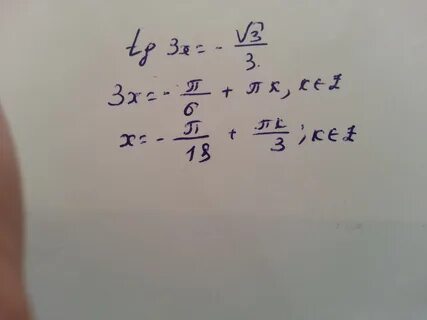 tg 3x = - √3/3
3x = - π/6 + πk, k∈Z
x = - π/18 + πk/3; k∈Z